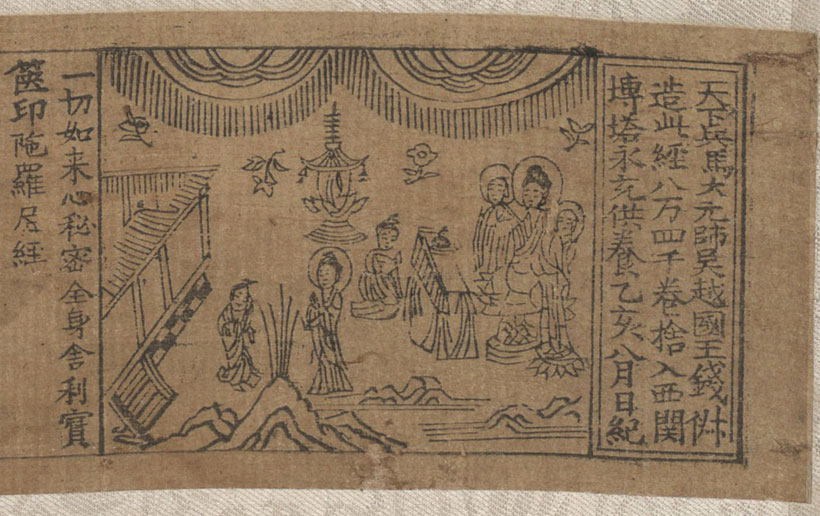 天下兵馬大元帥吳越國王錢俶
造此經八万四千卷捨入西関
塼塔永充供養乙亥八月日紀
一切如来心秘密全身舎利寳
篋印陁羅尼経